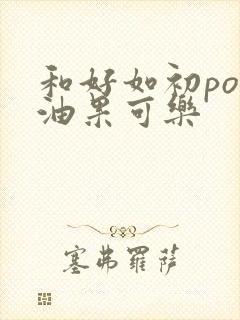 和好如初po
油果可樂
塞弗羅薩